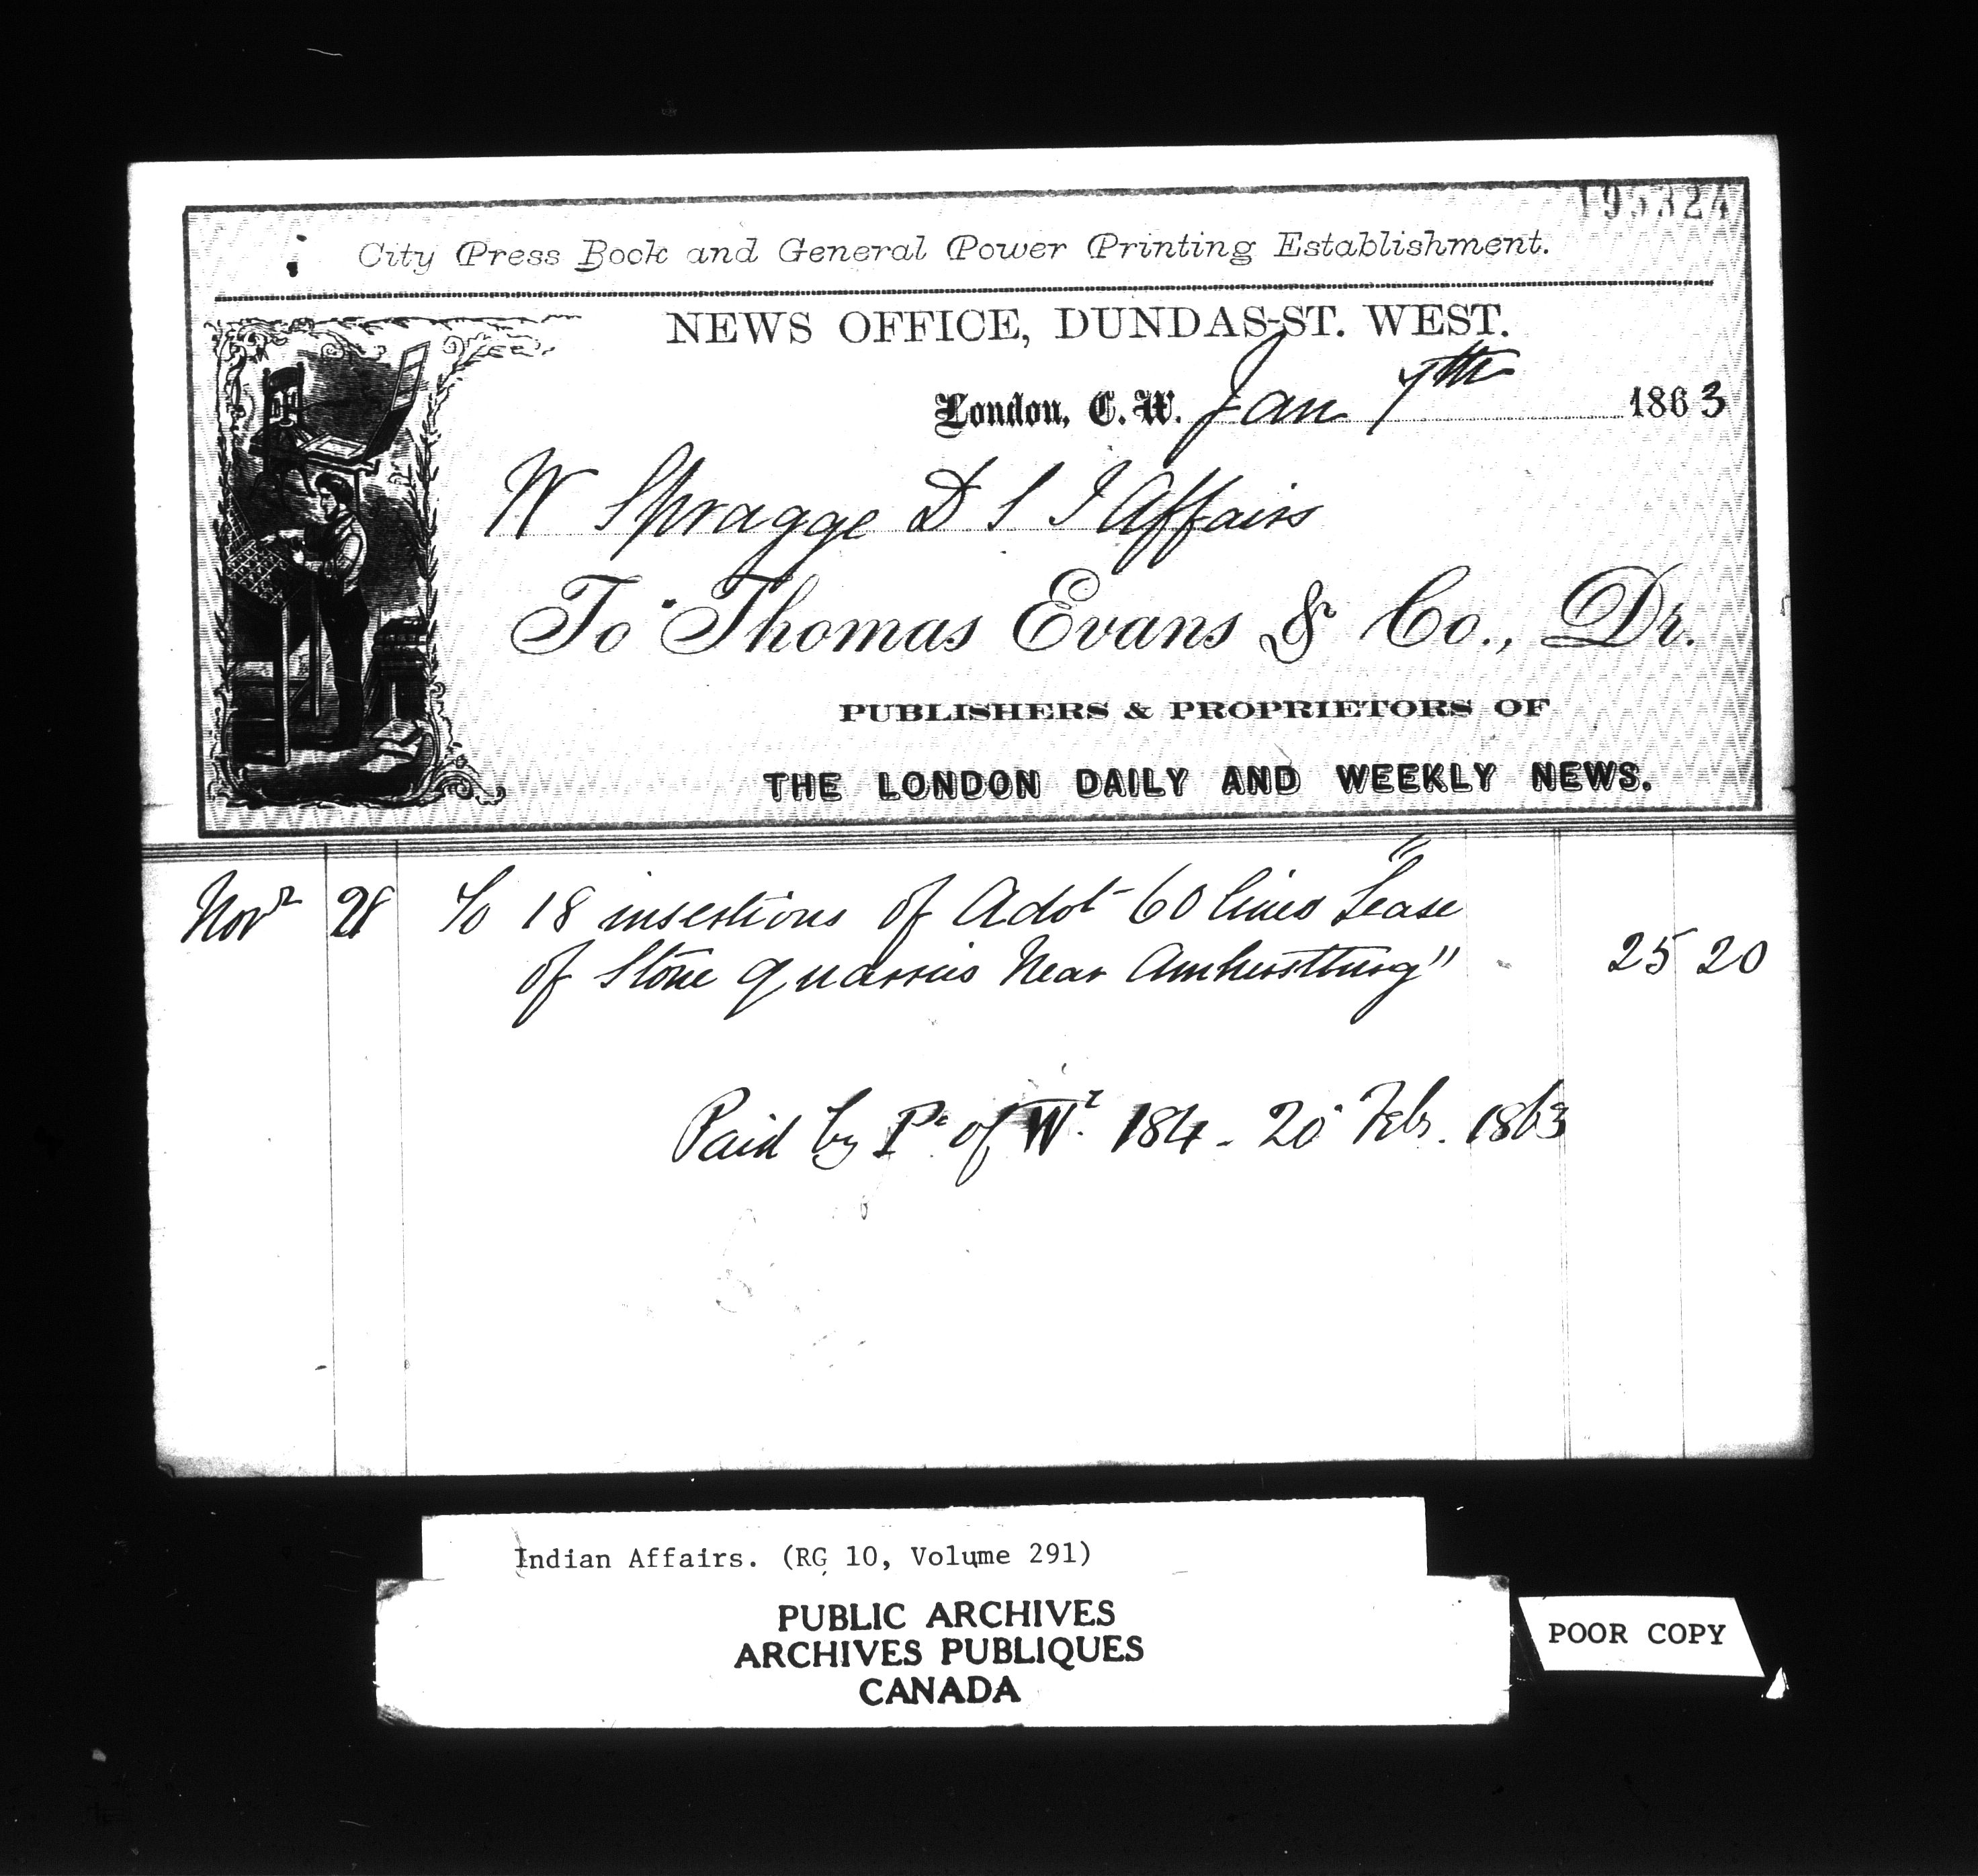 195324
City Press Book and General Power Printing Establishment.
NEWS OFFICE, DUNDAS-ST. WEST.
London, C. W. Jan 7th 1863
W Spragge D S I Affairs
To Thomas Evans & Co., Dr.
PUBLISHERS & PROPRIETORS OF
THE LONDON DAILY AND WEEKLY NEWS.
Novr 28 To 18 insertions of Advt 60 lines "Lease
of Stone quarries Near Amherstburg" 25 20
Paid by Pr of Wr 184 - 20 Feb. 1863
Indian Affairs. (RG 10, Volume 291)
PUBLIC ARCHIVES
ARCHIVES PUBLIQUES
CANADA
POOR COPY